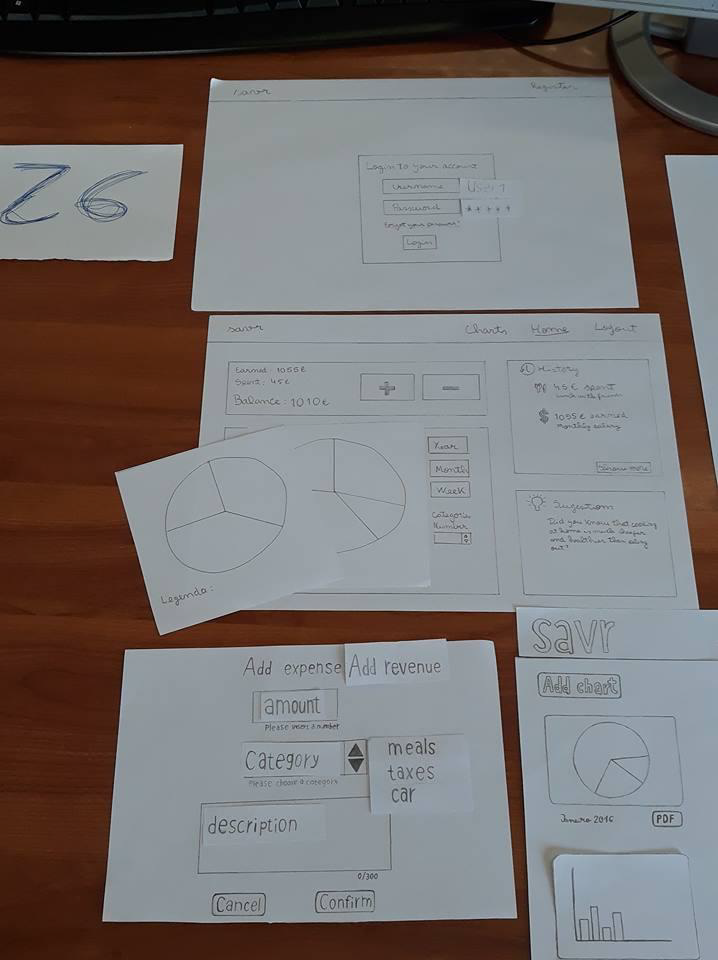 savr Register
26
Login to your account
Username User 1
Password *****
Forgot your password?
Login
savr Charts Home Logout
Earned: 1055€
Spent: 45€
Balance: 1010€
+ −
History
45€ spent
lunch with friends
$ 1055€ earned
monthly salary
Show more
Year
Month
Week
Categorie
Number
Sugestions
Did you know that cooking
at home is much cheaper
and healthier than eating
out?
Legenda:
Add expense Add revenue
amount
Please insert a number
Category
Please choose a category
meals
taxes
car
description
0/300
Cancel Confirm
savr
Add chart
Janeiro 2016 PDF